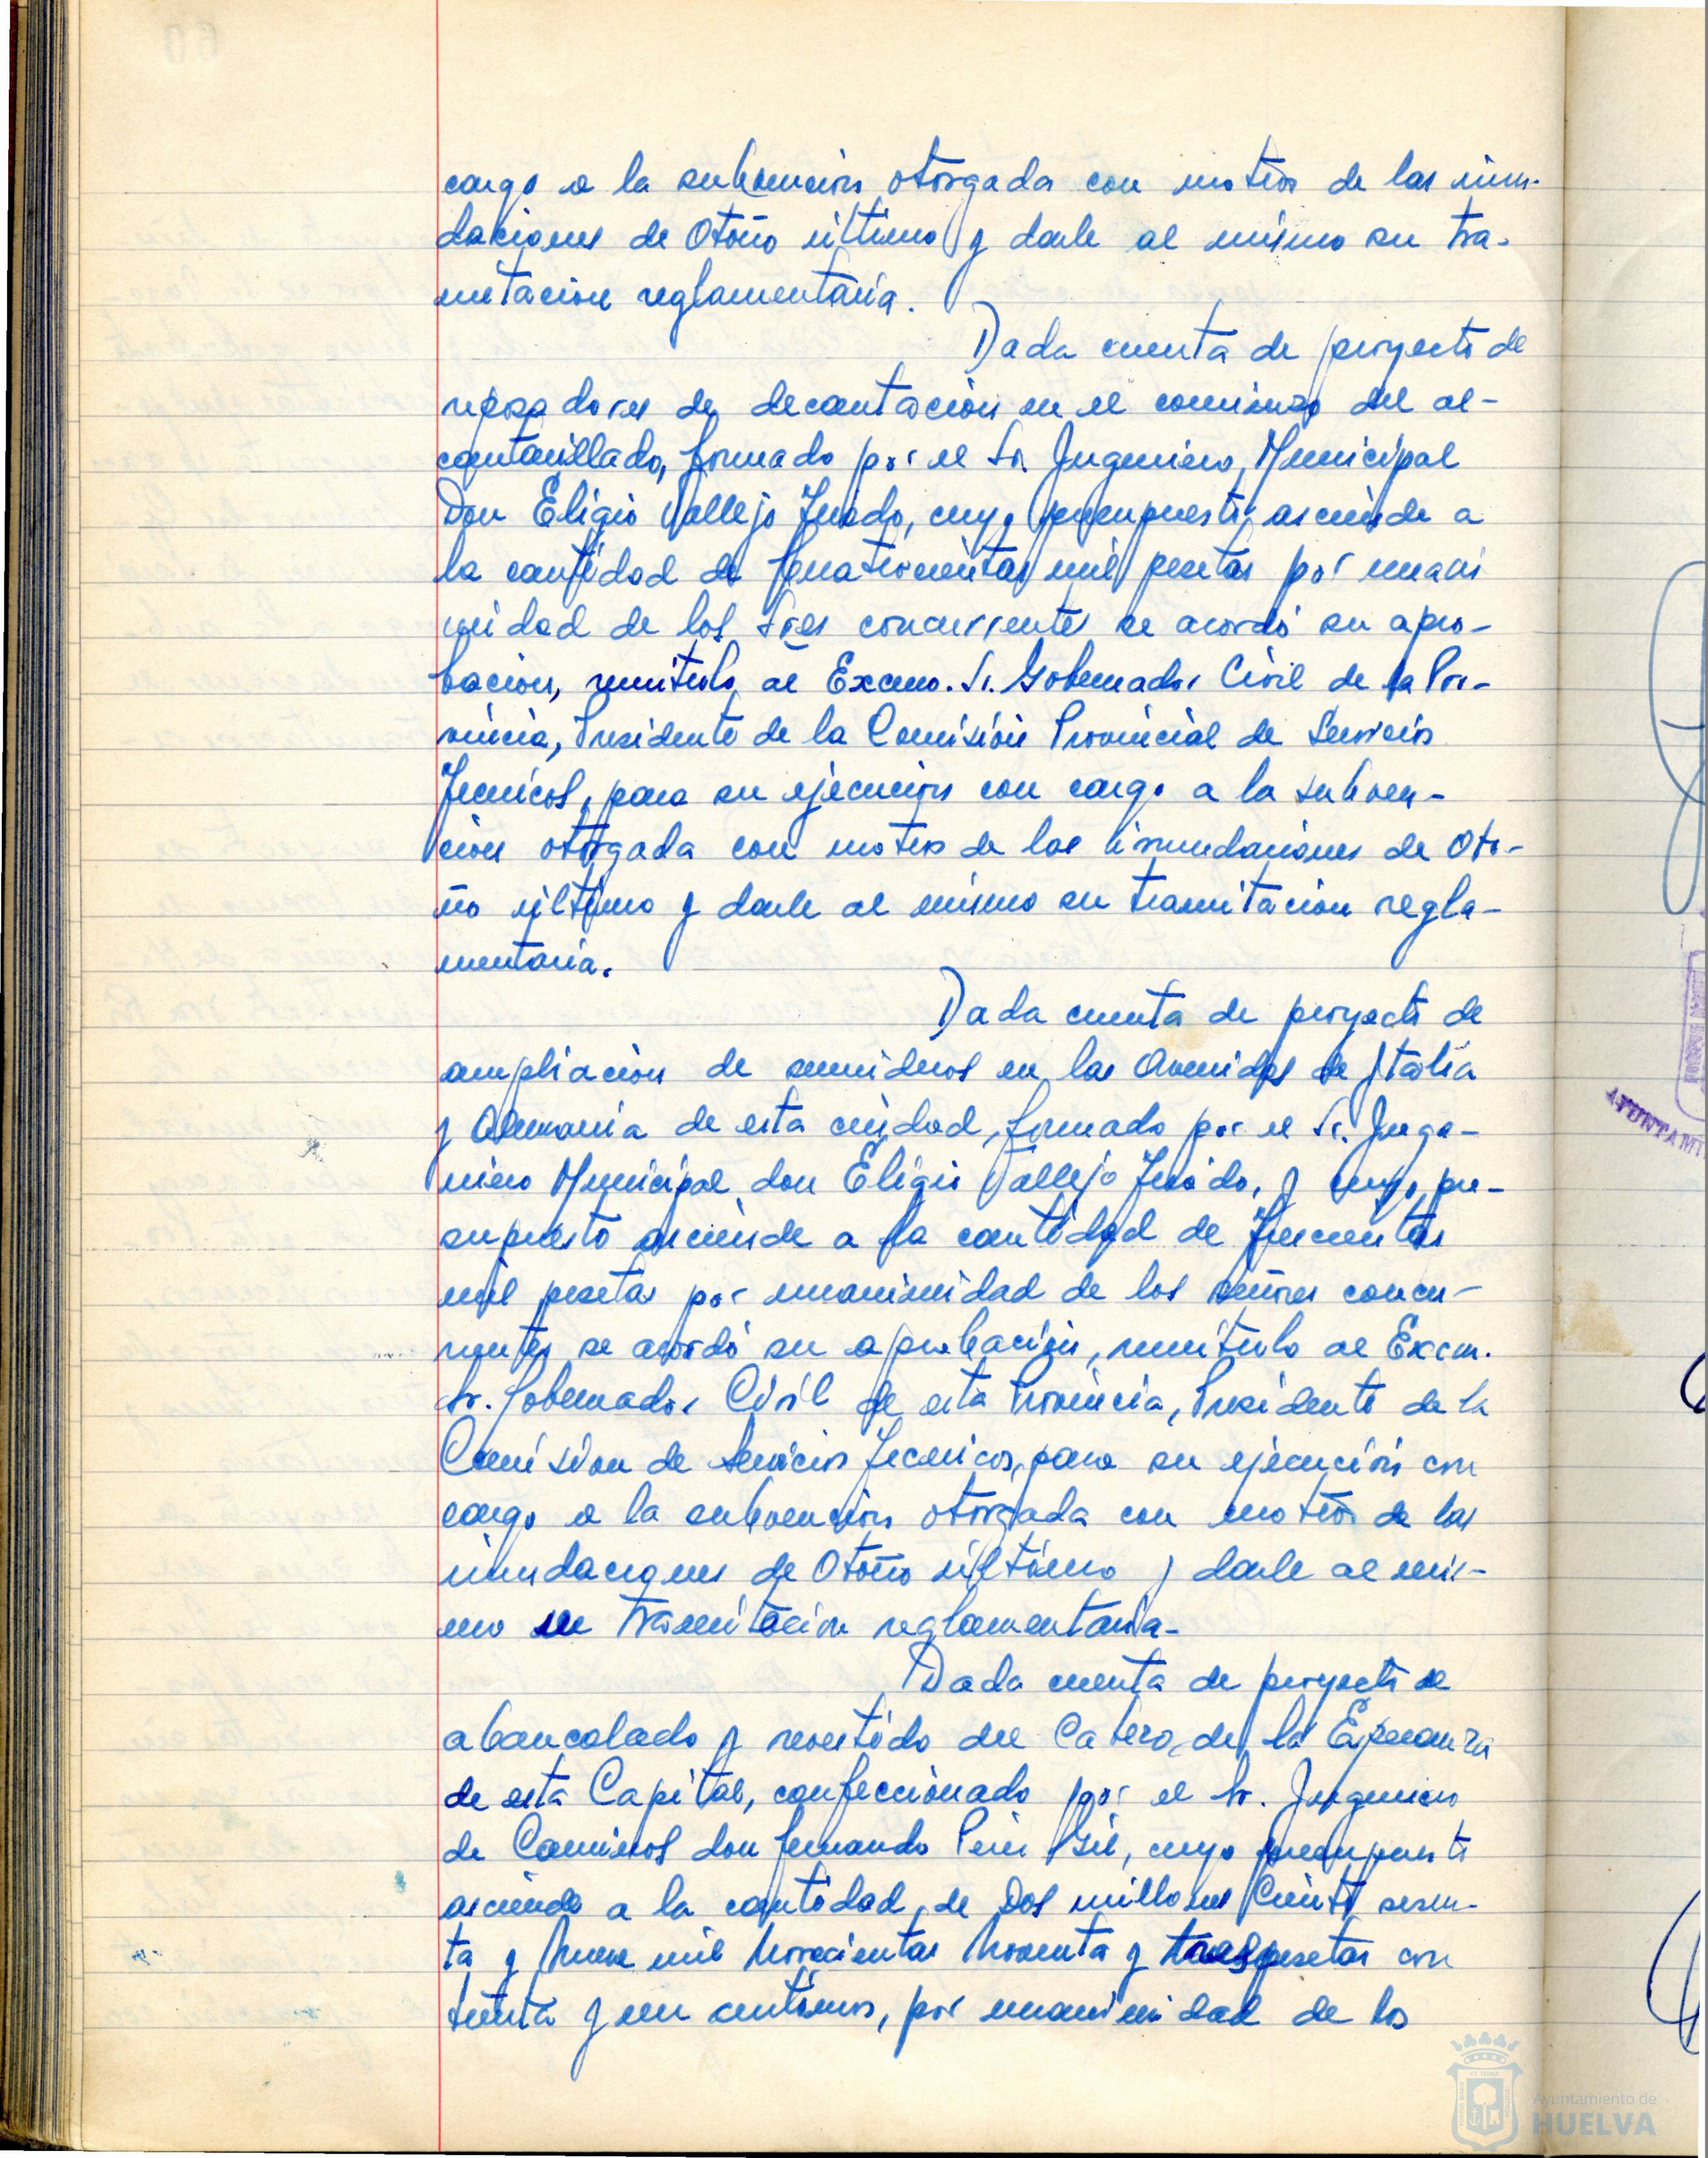 cargo a la subvención otorgada con motivo de las inun-
daciones de Otoño último y darle al mismo su tra-
mitación reglamentaria.
Dada cuenta de proyecto de
reposadores de decantación en el comienzo del al-
cantarillado, formado por el Sr. Ingeniero Municipal
Don Eligio Vallejo Jurado, cuyo presupuesto asciende a
la cantidad de Cuatrocientas mil pesetas por unani
midad de los Sres concurrentes se acordó su apro-
bación, remitirlo al Excmo. Sr. Gobernador Civil de la Pro-
vincia, Presidente de la Comisión Provincial de Servicios
Tecnicos, para su ejecución con cargo a la subven-
ción otorgada con motivo de las inundaciones de Oto-
ño último y darle al mismo su tramitación regla-
mentaria.
Dada cuenta de proyecto de
ampliación de sumideros en las Avenidas de Italia
y Alemania de esta ciudad, formado por el Sr. Inge-
niero Municipal don Eligio Vallejo Jurado, y cuyo pre-
supuesto asciende a la cantidad de Trescientas
mil pesetas por unanimidad de los señores concu-
rrentes se acordó su aprobación, remitirlo al Excm.
Sr. Gobernador Civil de esta Provincia, Presidente de la
Comision de Servicios Tecnicos, para su ejecución con
cargo a la subvención otorgada con motivo de las
inundaciones de Otoño último y darle al mis-
mo su tramitación reglamentaria-
Dada cuenta de proyecto de
abancalado y revestido del Cabezo de la Esperanza
de esta Capital, confeccionado por el Sr. Ingeniero
de Caminos don Fernando Gil, cuyo presupuesto
asciende a la cantidad de Dos millones Ciento sesen-
ta y Nueve mil Novecientas Noventa y tres pesetas con
treinta y un centimos, por unanimidad de los
Ayuntamiento de
HUELVA